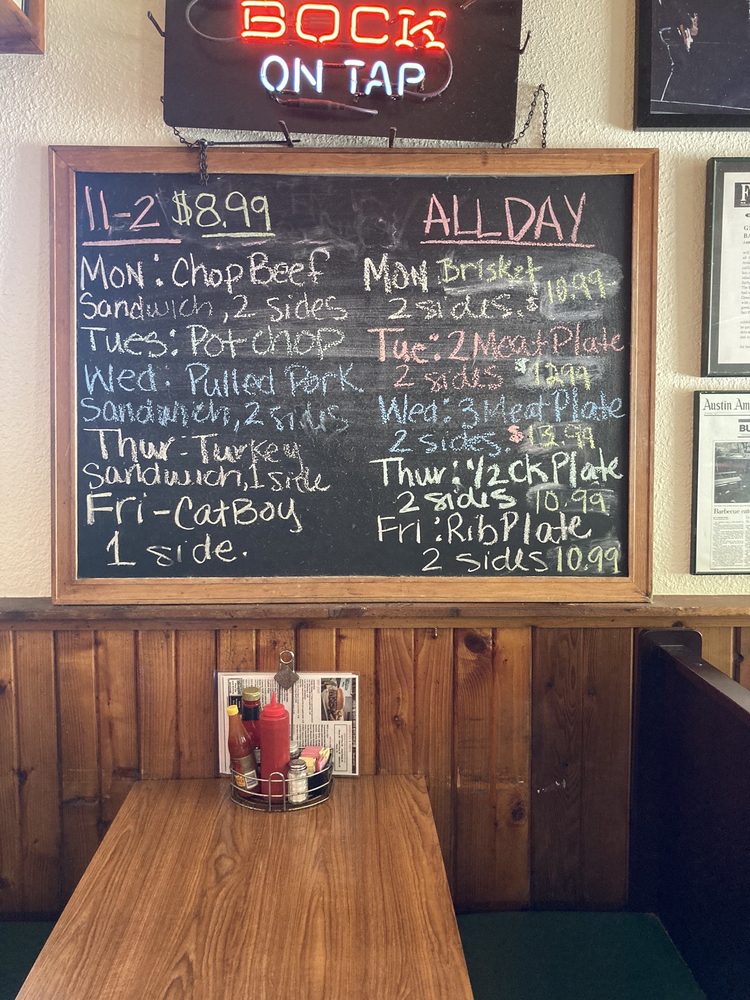 BOCK
ON TAP
11-2 $8.99
Mon: Chop Beef
Sandwich, 2 sides
Tues: Pot chop
Wed: Pulled Pork
Sandwich, 2 sides
Thur-Turkey
Sandwich, 1 side
Fri-CatBoy
1 side.
ALLDAY
Mon: Brisket
2 sides. $10.99
Tue: 2 Meat Plate
2 sides $12.99
Wed: 3 Meat Plate
2 sides. $13.99
Thur: 1/2 CK Plate
2 sides 10.99
Fri: Rib Plate
2 sides 10.99
Austin Am